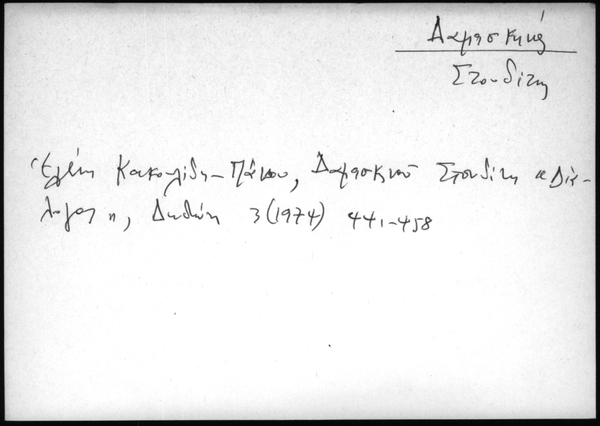 Δαμασκηνός
Στουδίτης
Ἑλένη Κακουλίδη-Πάνου, Δαμασκηνοῦ Στουδίτη «Διά-
λογος», Δωδώνη 3 (1974) 441-458